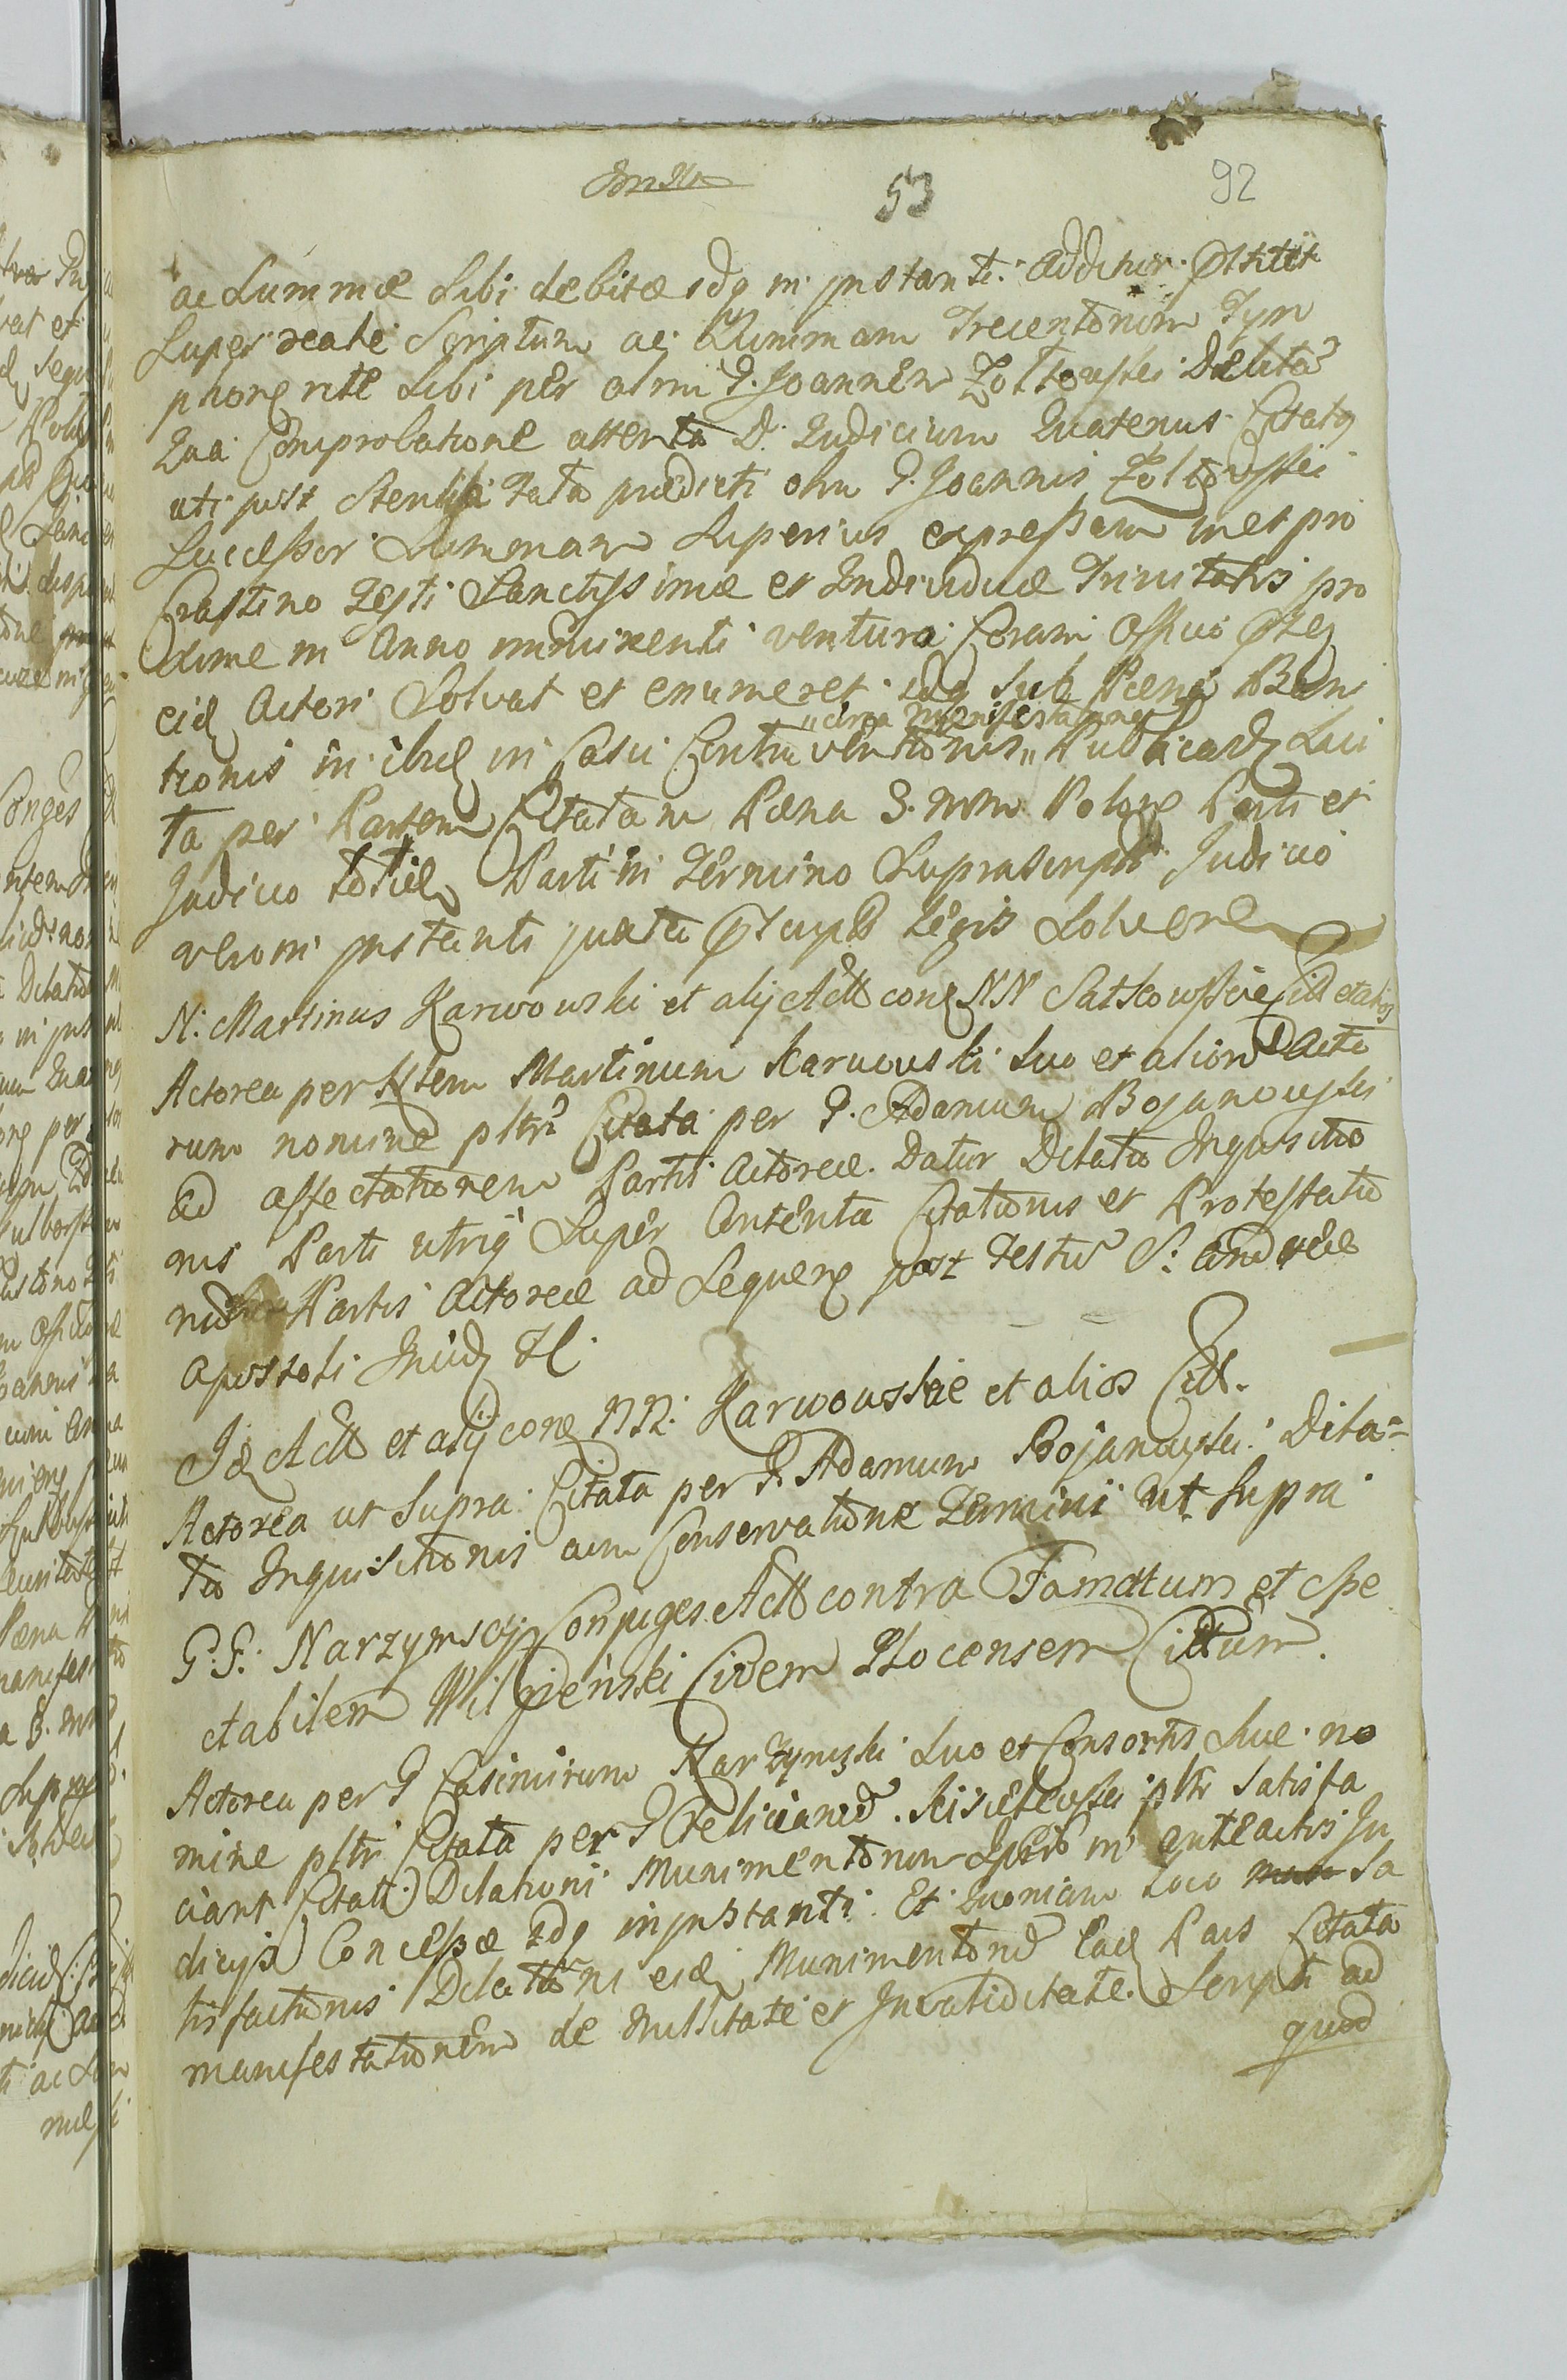 53
92
ac Summæ Sibi debitæ idq in jnstanti. Additur
Super reale Scriptum ac Summam Trecentorum Tyn
phorę rite Sibi per olim G. Joannem Zołtowski Debitã
Qua Comprobatione attenta D. Judicium Quatenus Citatq
uti post Sterilia Fata prædicti olim G. Joannis Zołtowski
Successor Summam Superius expressam in et pro
Crastino Festi Sanctissimæ et Individuæ Trinitatis pro
xime in Anno imminenti ventura Coram Officio
eid Actori Solvat et enumeret idq Sub Pæna Ban
„circa manifestationem
tionis in in Casu Contraventionis„ Publicand Lui
ta per Partem Citatam Pæna 3. Mrm Polonę Parti et
Judicio totid Parti in Termino Suprascripto Judicio
vero in jnstanti juxta Legis Solvere
N. Martinus Karwowski et alij Act conę NN Sutkowskie Citt et alios
Actorea per Martinum Karwowski Suo et aliorũ Acto
rum nomine pltr Citata per G. Adamum Bojanowski
Ad affectationem Partis Actoreæ. Datur Dilatio Inquisitio
nis Parti utriq Super Contenta Citationis et Protestatio
nis Partis Actoreæ ad Sequenę post Festũ S. Andreæ
Apostoli
Id Act et alij conę NN. Karwowskie et alios Citt.
Actorea ut Supra Citata per G. Adamum Bojanowski. Dila=
tio Inquisitionis cum Conservatione Termini ut Supra
G.G. Narzymscy Conjuges Act contra Famatum et Spe
ctabilem Wilipieński Civem Plocensem Cittum.
Actorea per G Casimirum Narzymski Suo et Consortis Suæ no
mine pltr Citata per G Felicianũ Kisielewski pltr Satisfa
ciant Citati Dilationi Munimentorum in anteactis Ju
dicijs Concessæ idq in jnstanti. Et Quoniam Loco Sa
tisfactionis Dilationi eid Munimentorũ Ead Pars Citata
manifestationem de Nullitate et Invaliditate Scripti ad
quod